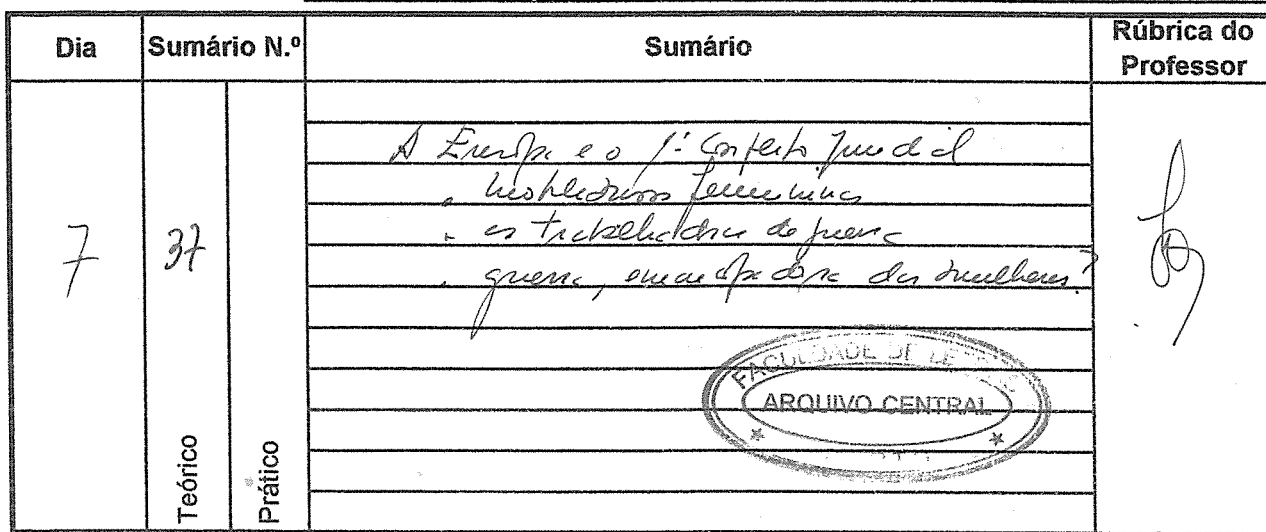 Dia
Sumário N.º
Sumário
Rúbrica do
Professor
7
37
Teórico
Prático
A Europa e o 1º Conflito Mundial
. Mobilizações femininas
. as trabalhadoras de guerra
. guerra, emancipadora das mulheres?
FACULDADE DE LE
ARQUIVO CENTRAL